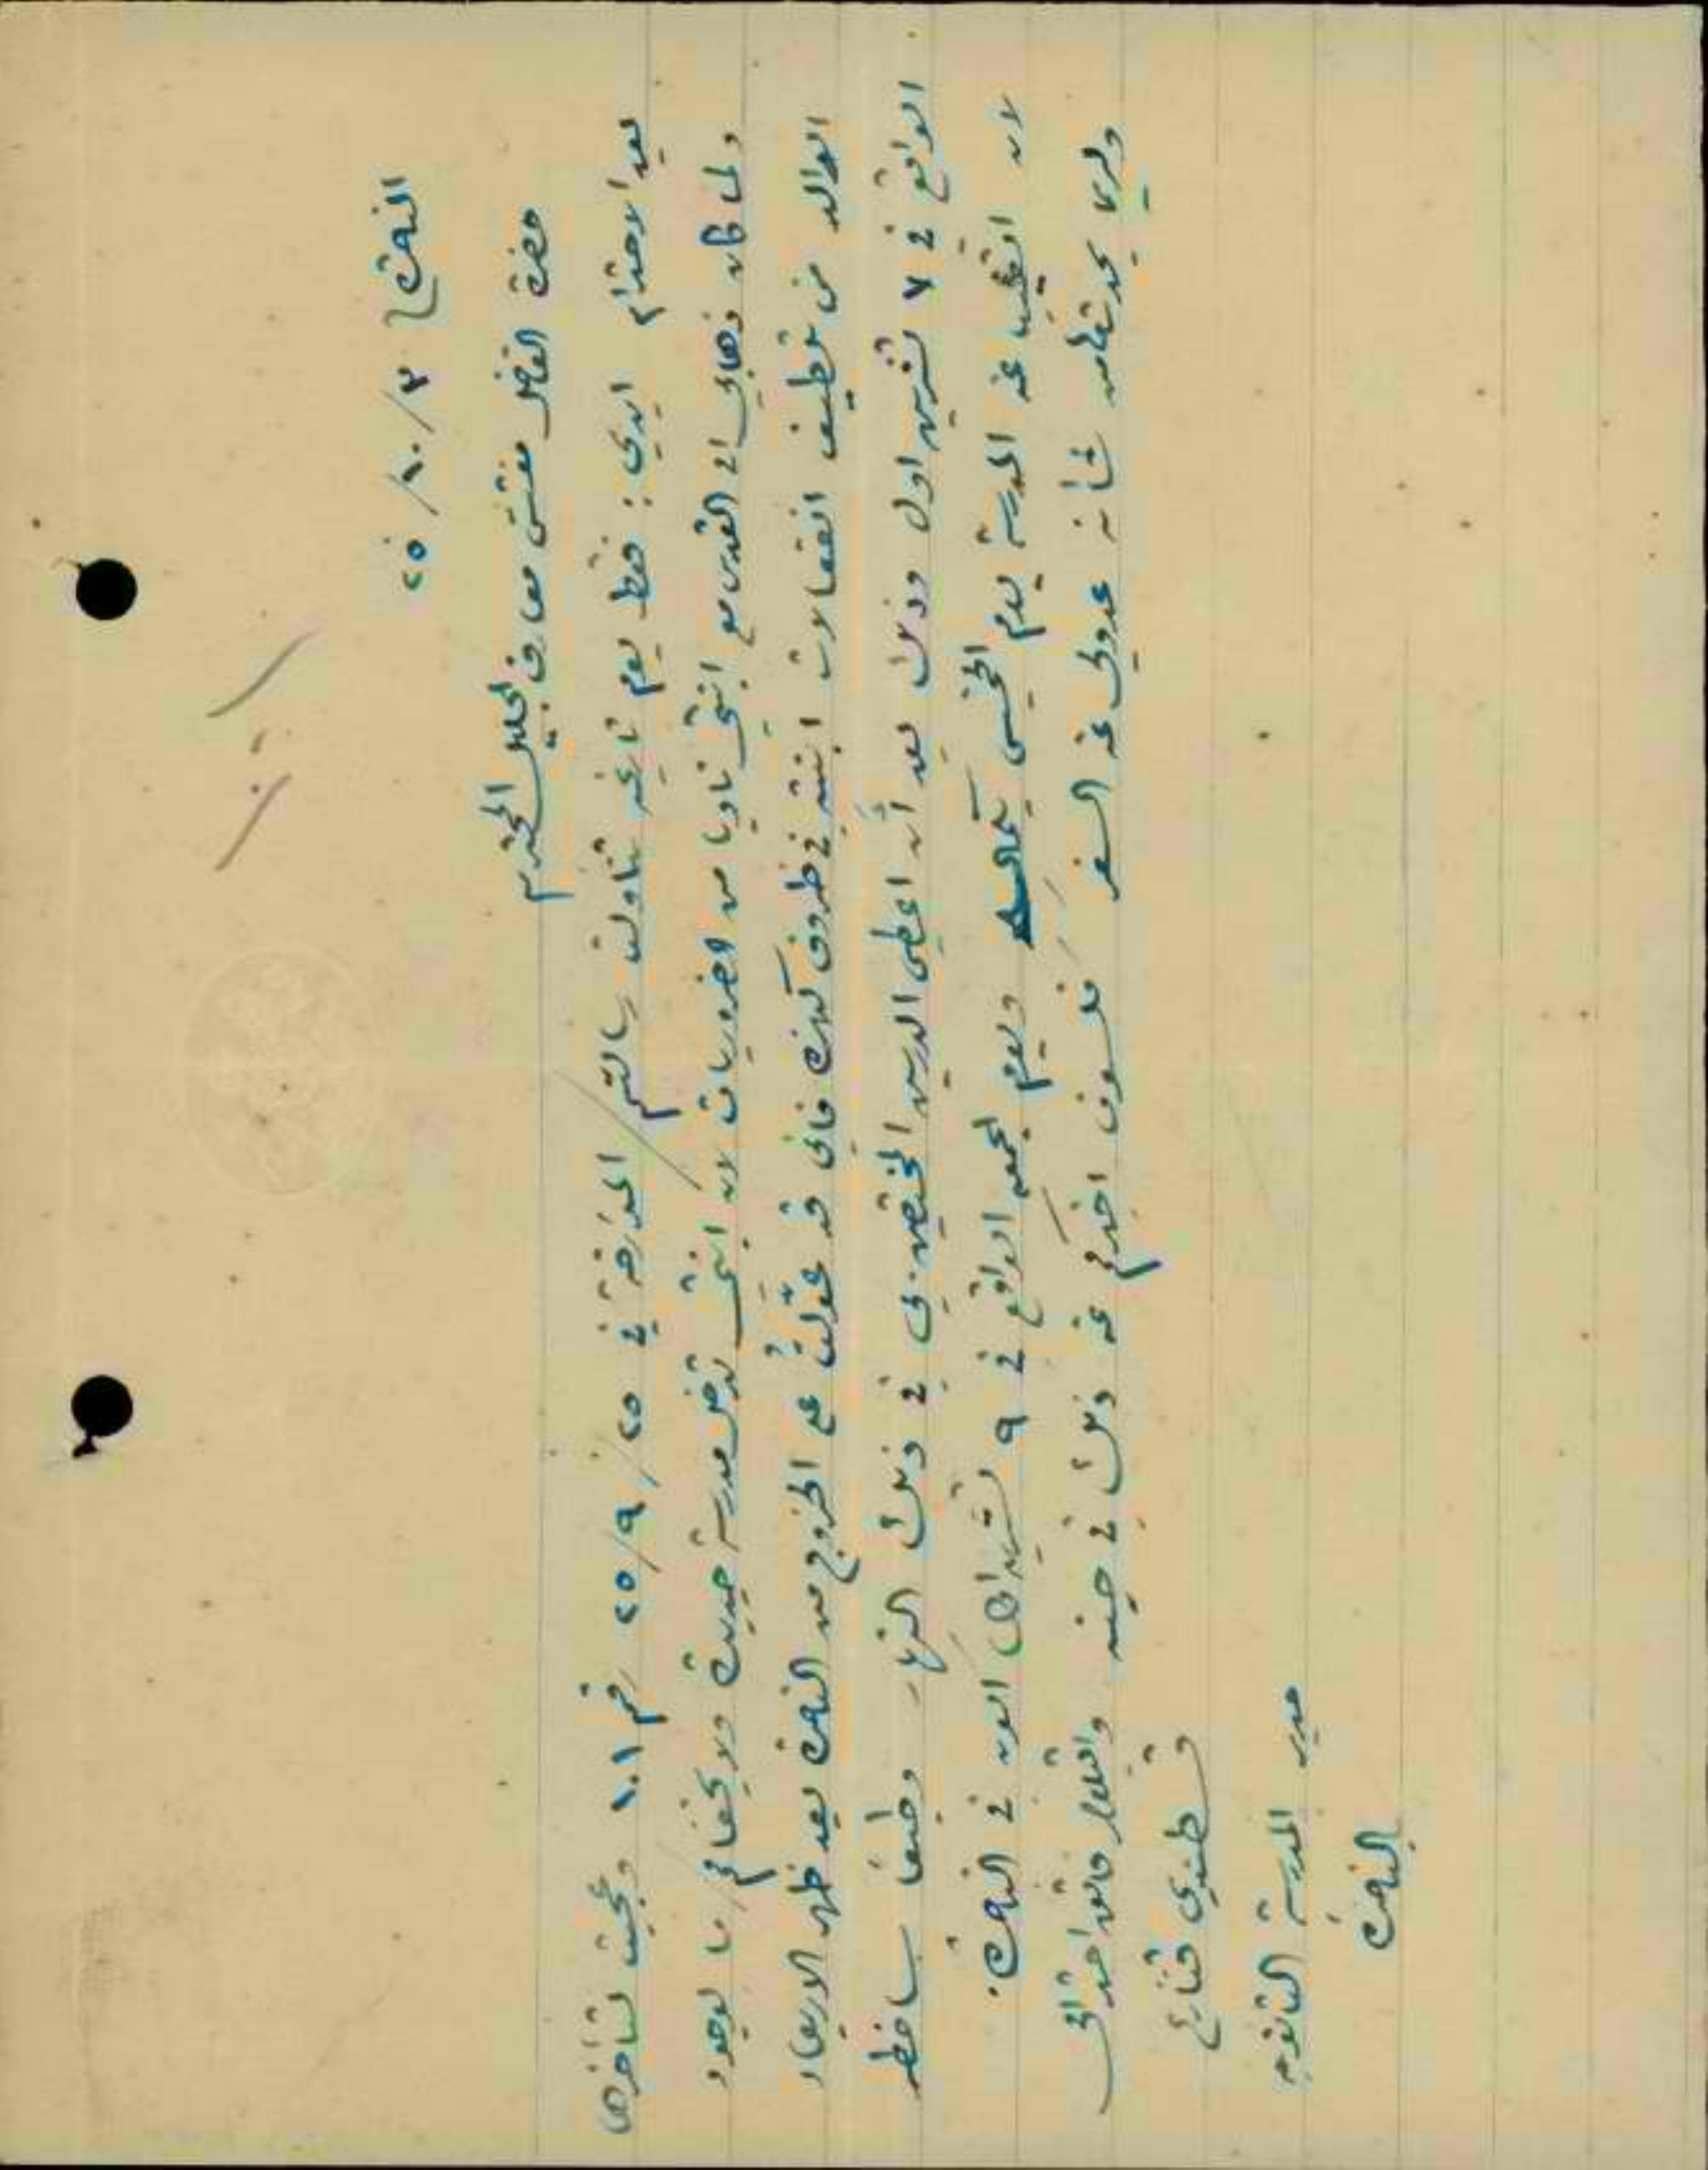 الناصرة ٣/١٠/٢٥
حضرة الفاضل مفتش معارف الجليل المحترم
بعد الاحترام ابدي: فقط يوم تاريخه تناولت رسالتكم المؤرخة في ٢٥/٩/٢٥ رقم ١٠١ وعجبت لتأخرها
ولما كان ذهابي الى القدس مع ابنتي ناديا من الضروريات لان ابنتي تدخل مدرسة جديدة ولا يخفاكم ما لوجود
الوالد من تلطيف انفعالات ابنته في ظروف كهذه فاني قد عوّلتُ على الخروج من الناصرة بعد ظهر الاربعاء
الواقع في ٧ تشرين اول وذلك بعد أن اعطي الدرسين المختصين بي في ذلك النهار وطبعاً ساضطر
لان اتغيب عن المدرسة يوم الخميس بكماله ويوم الجمعة الواقع في ٩ تشرين اول اكون في الناصرة.
واذا يحدث ما من شأنه عدولي عن السفر فلسوف اخبركم عن ذلك في حينه وافتبلوا فائق احترامي
قسطندي قنازع
مدير المدرسة الثانوية
الناصرة